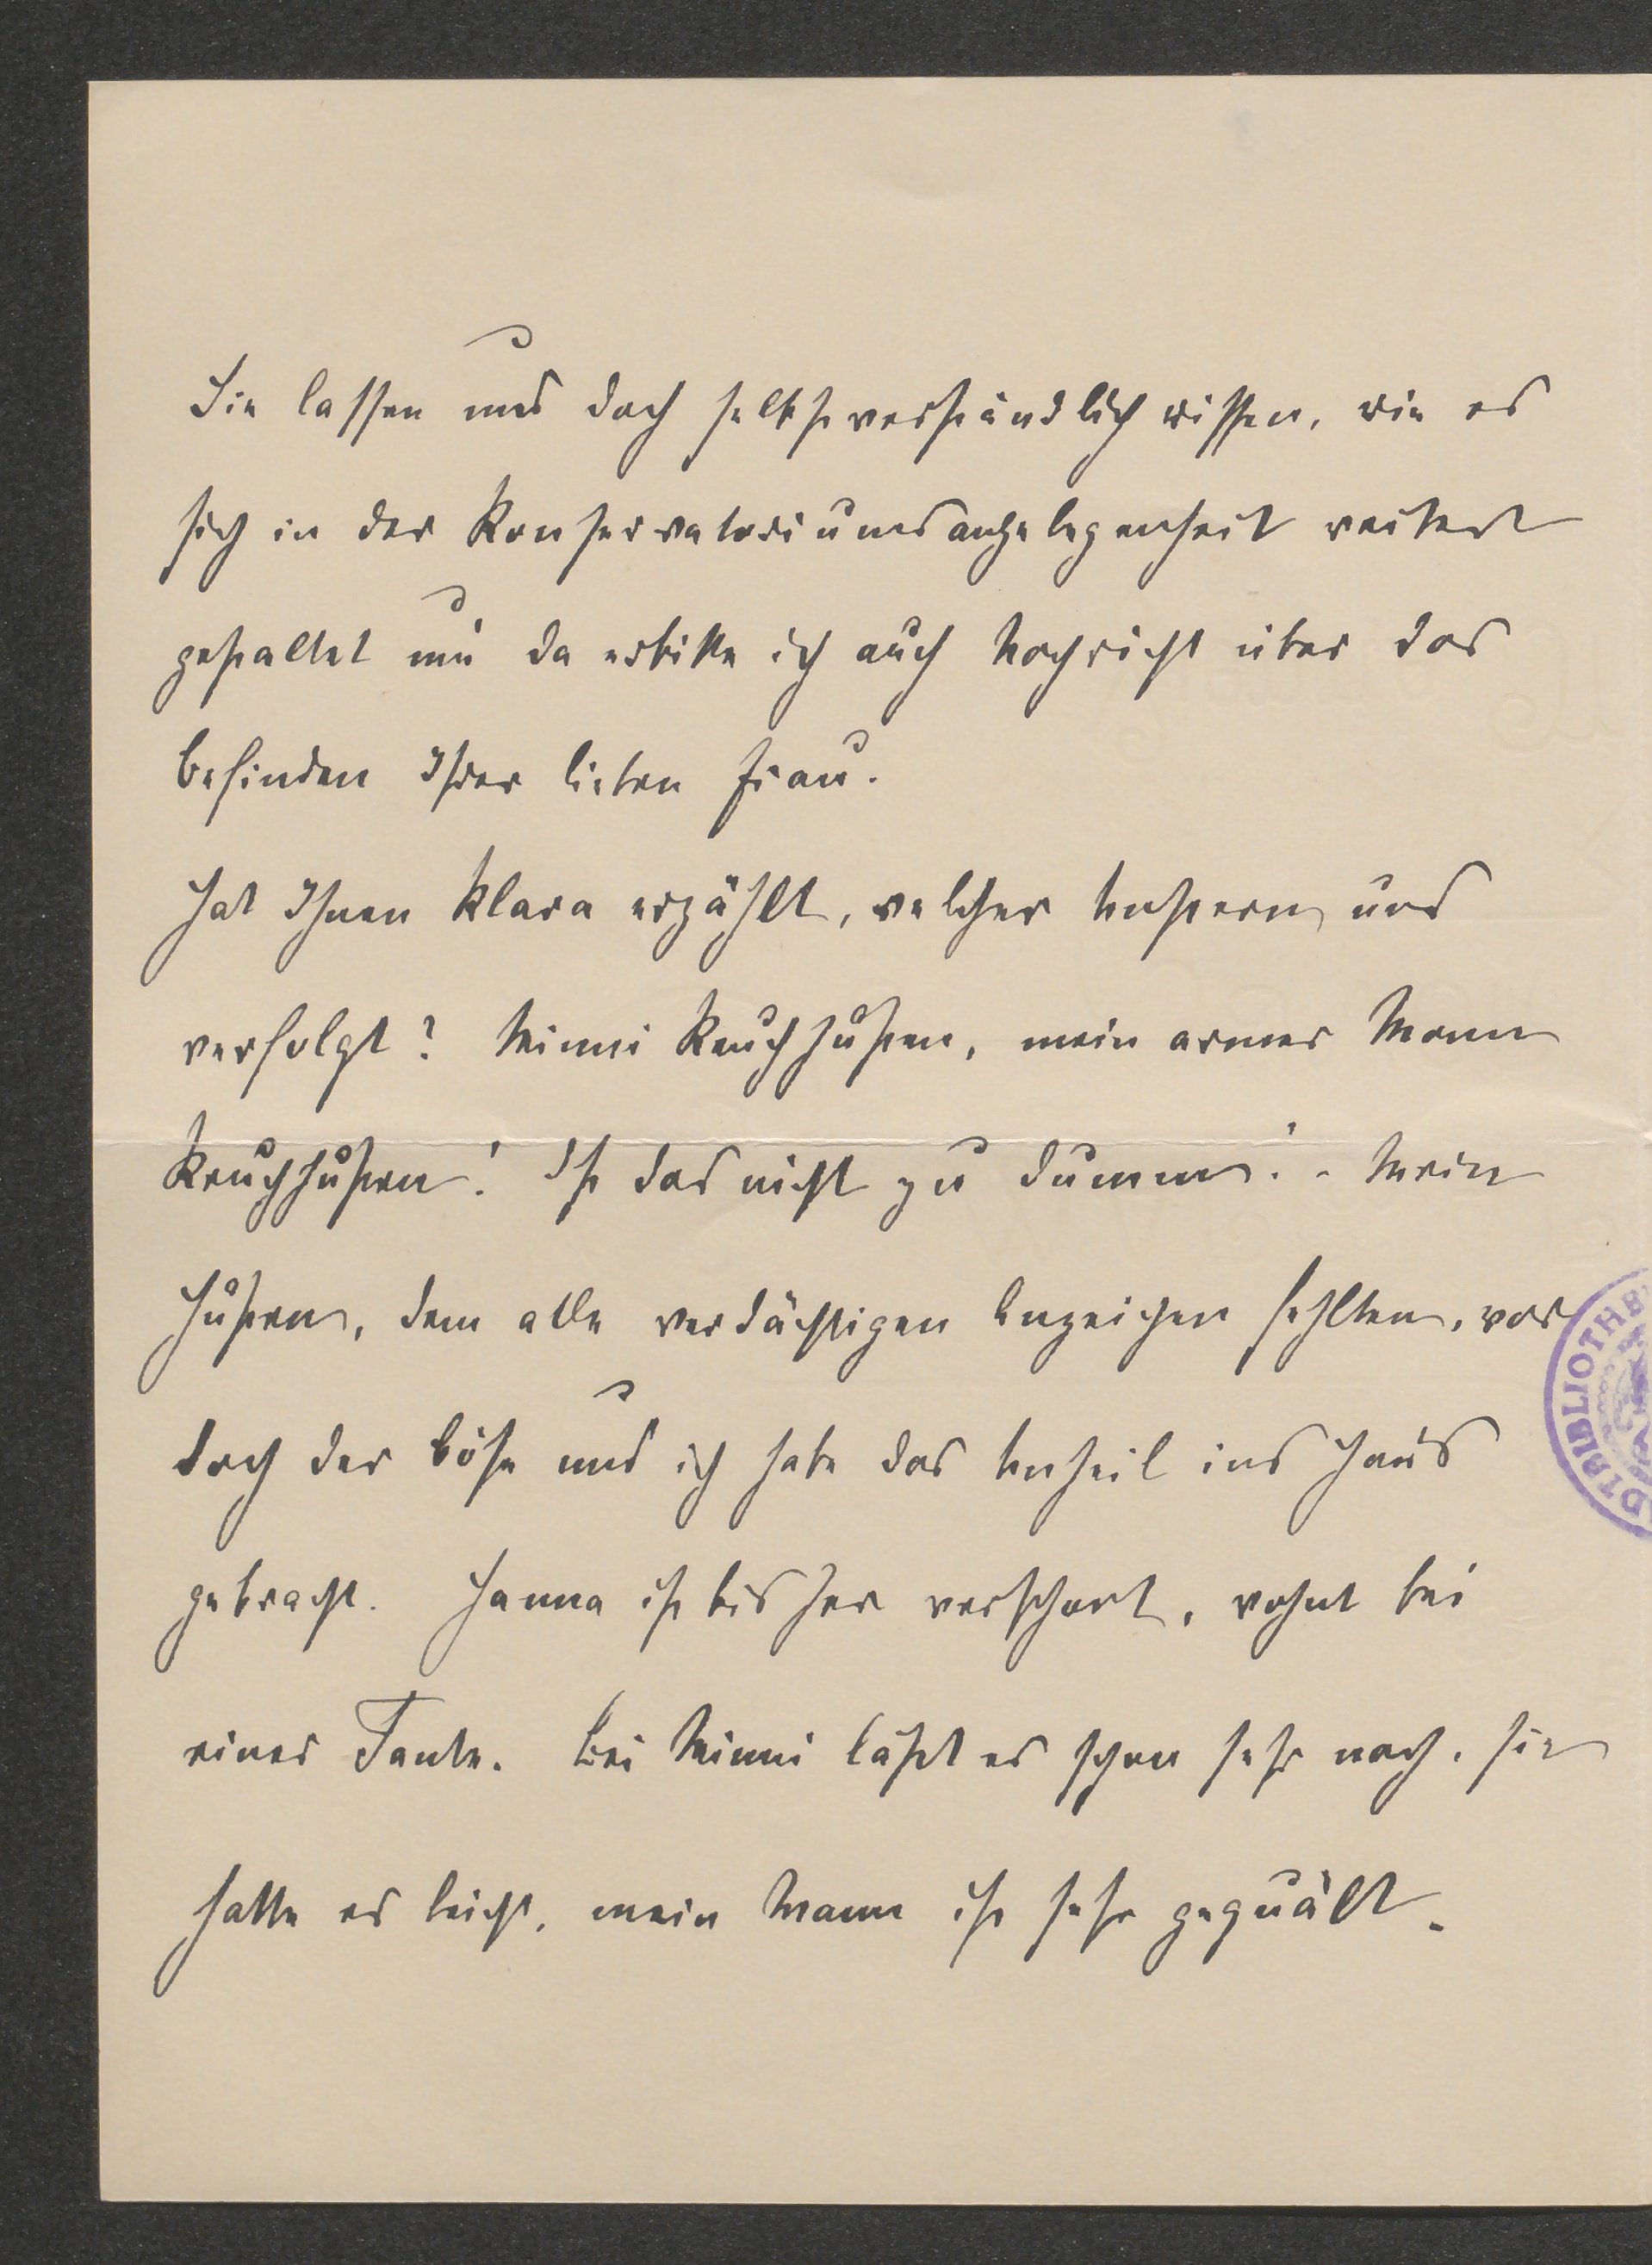 Sie lassen uns doch selbstverständlich wissen, wie es
sich in der Konservatoriumsangelegenheit weiter
gestaltet und da erbitte ich auch Nachricht über das
Befinden Ihrer lieben Frau.
Hat Ihnen Klara erzählt, welcher Unstern uns
verfolgt? Mimi Keuchhusten, mein armer Mann
Keuchhusten! Ist das nicht zu dumm! - Mein
Husten, dem alle verdächtigen Anzeichen fehlten, war
doch der böse und ich habe das Unheil ins Haus
gebracht. Hanna ist bisher verschont, wohnt bei
einer Tante. Bei Mimi läßt es schon sehr nach, sie
hatte es leicht, mein Mann ist sehr gequält.
DTBIBLIOTHE